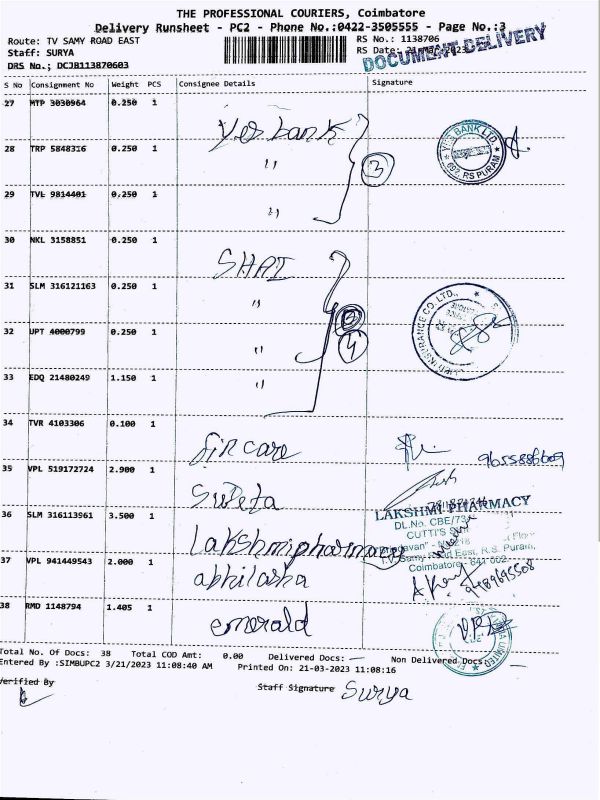 THE PROFESSIONAL COURIERS, Coimbatore
Delivery Runsheet - PC2 - Phone No.:0422-3505555 - Page No.:3
Route: TV SAMY ROAD EAST
RS No.: 1138706
Staff: SURYA
RS Date: 21-Mar-2023
DOCUMENT DELIVERY
DRS No.; DCJB113870603
S No Consignment No Weight PCS Consignee Details Signature
27 MTP 3030964 0.250 1 Yes bank
28 TRP 5848316 0.250 1 "
3
YES BANK LTD.
602, RS PURAM
29 TVL 9814401 0.250 1 "
30 NKL 3158851 0.250 1 SHAI
31 SLM 316121163 0.250 1 "
INSURANCE CO. LTD.,
32 UPT 4000799 0.250 1 "
4
33 EDQ 21480249 1.150 1 "
34 TVR 4103306 0.100 1 fin care
9655886609
35 VPL 519172724 2.900 1 Sweta
36 SLM 316113961 3.500 1 Lakshmipharmacy
LAKSHMI PHARMACY
DL.No. CBE/73
CUTTI'S
East, R.S. Puram,
Coimbatore - 641 002.
37 VPL 941449543 2.000 1 abhilasha
9489695508
38 RMD 1148794 1.405 1 emerald
Total No. Of Docs: 38 Total COD Amt: 0.00 Delivered Docs: Non Delivered Docs:
Entered By :SIMBUPC2 3/21/2023 11:08:40 AM Printed On: 21-03-2023 11:08:16
Verified By
Staff Signature Surya